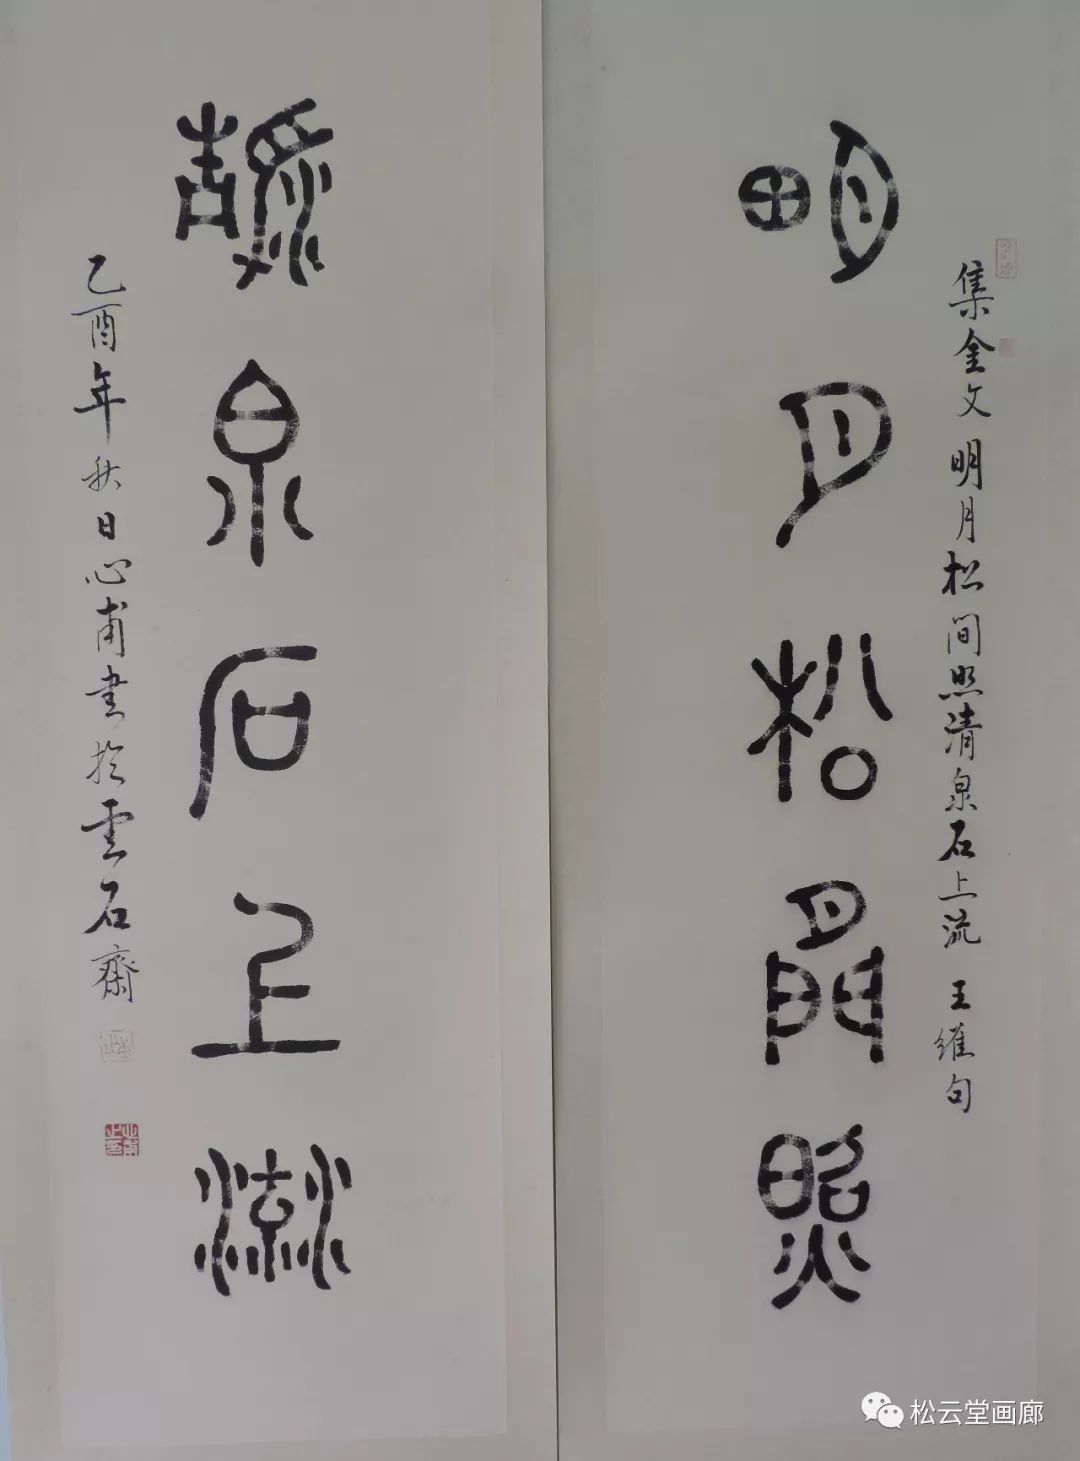 集金文明月松间照清泉石上流 王维句
明月松間照
清泉石上流
乙酉年秋日心甫书於云石斋
松云堂画廊